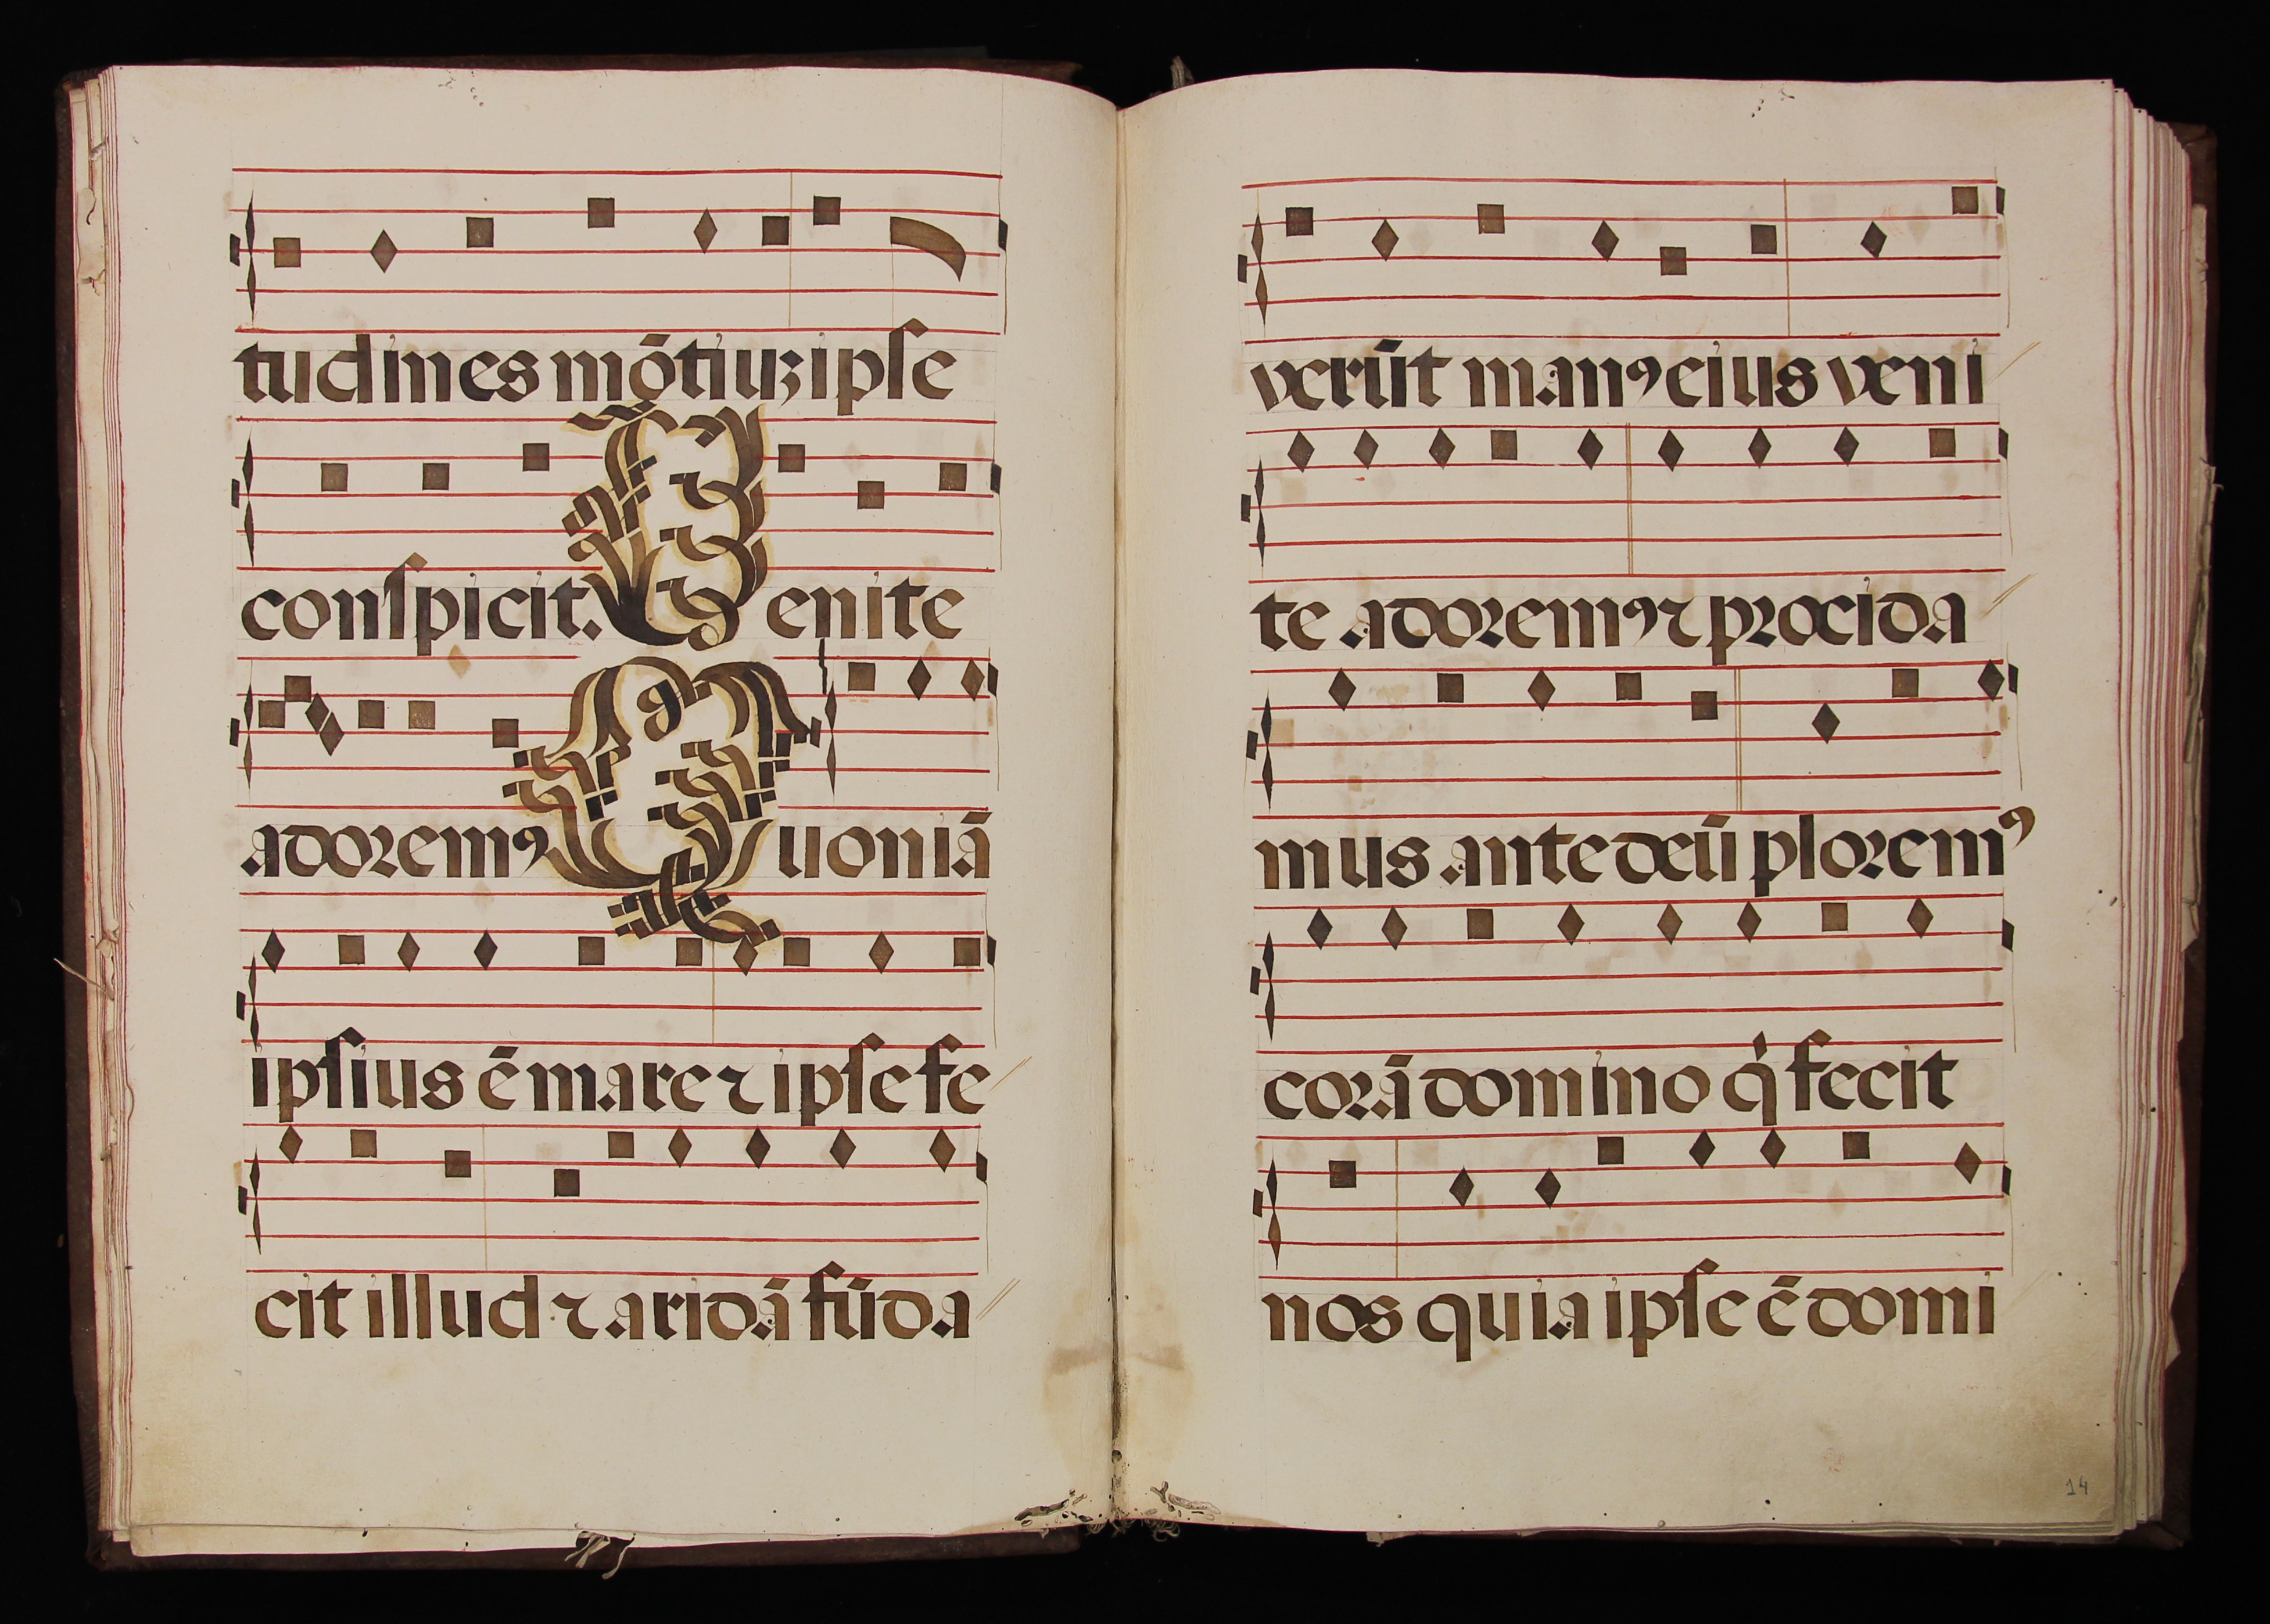 tudines mõtiuꝫ ipſe
conſpicit. Venite
adoremꝯ Quoniã
ipſius ẽ mare ⁊ ipſe fe
cit illud ⁊ aridã fũda
verũt manꝯ eius veni
te adoremꝯ ⁊ procida
mus ante deũ ploremꝯ
corã domino qͥ fecit
nos quia ipſe ẽ domi
14